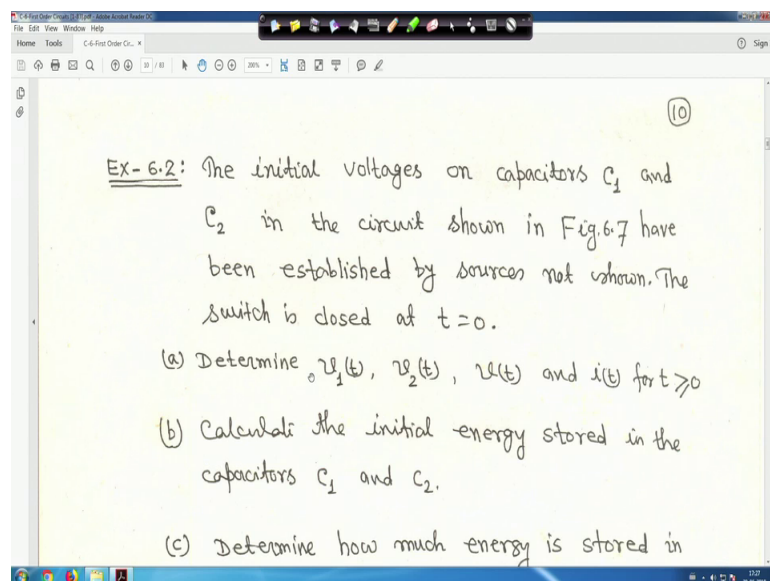 C-6-First Order Circuits [1-83].pdf - Adobe Acrobat Reader DC
File Edit View Window Help
Home Tools C-6-First Order Cir... × Sign
10 / 83 200%
10
EX-6.2: The initial voltages on capacitors C₁ and
C₂ in the circuit shown in Fig.6.7 have
been established by sources not shown. The
switch is closed at t=0.
(a) Determine v₁(t), v₂(t), v(t) and i(t) for t≥0
(b) Calculate the initial energy stored in the
capacitors C₁ and C₂.
(c) Determine how much energy is stored in
17:27